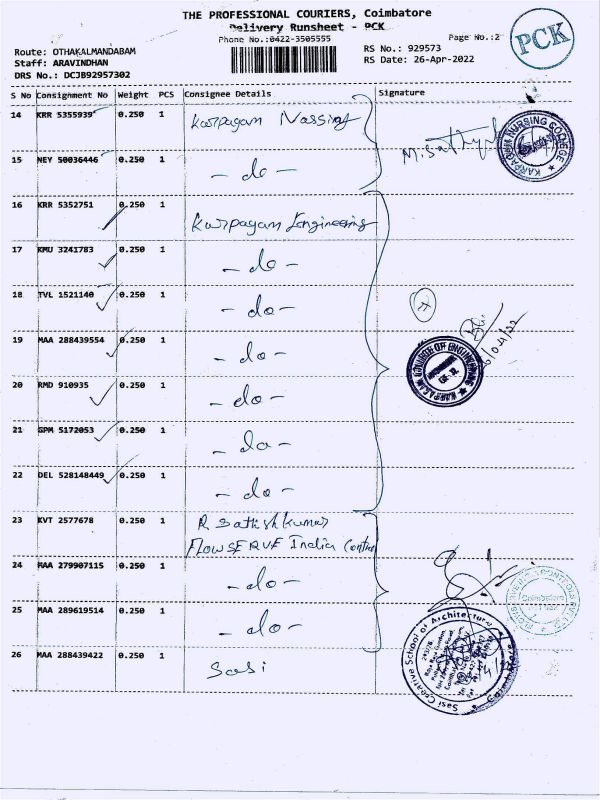 THE PROFESSIONAL COURIERS, Coimbatore
Delivery Runsheet - PCK
Phone No.:0422-3505555
Page No.:2
PCK
Route: OTHAKALMANDABAM
Staff: ARAVINDHAN
DRS No.: DCJB92957302
RS No.: 929573
RS Date: 26-Apr-2022
S No Consignment No Weight PCS Consignee Details Signature
14 KRR 5355939 0.250 1 Karpagam Nassing M.Sathya
KARPAGAM NURSING COLLEGE
15 NEY 50036446 0.250 1 - do -
16 KRR 5352751 0.250 1 Karpagam Engineering
17 KMU 3241783 0.250 1 - do -
18 TVL 1521140 0.250 1 - do -
7
19 MAA 288439554 0.250 1 - do -
KARPAGAM COLLEGE OFF ENGINEERING
20 RMD 910935 0.250 1 - do -
21 GPM 5172053 0.250 1 - do -
22 DEL 528148449 0.250 1 - do -
23 KVT 2577678 0.250 1 R. Sathishkumar
FLOWSERVE India Control
24 MAA 279907115 0.250 1 - do -
Coimbatore
25 MAA 289619514 0.250 1 - do -
26 MAA 288439422 0.250 1 Sasi
Sasi Creative School of Architecture
Coimbatore